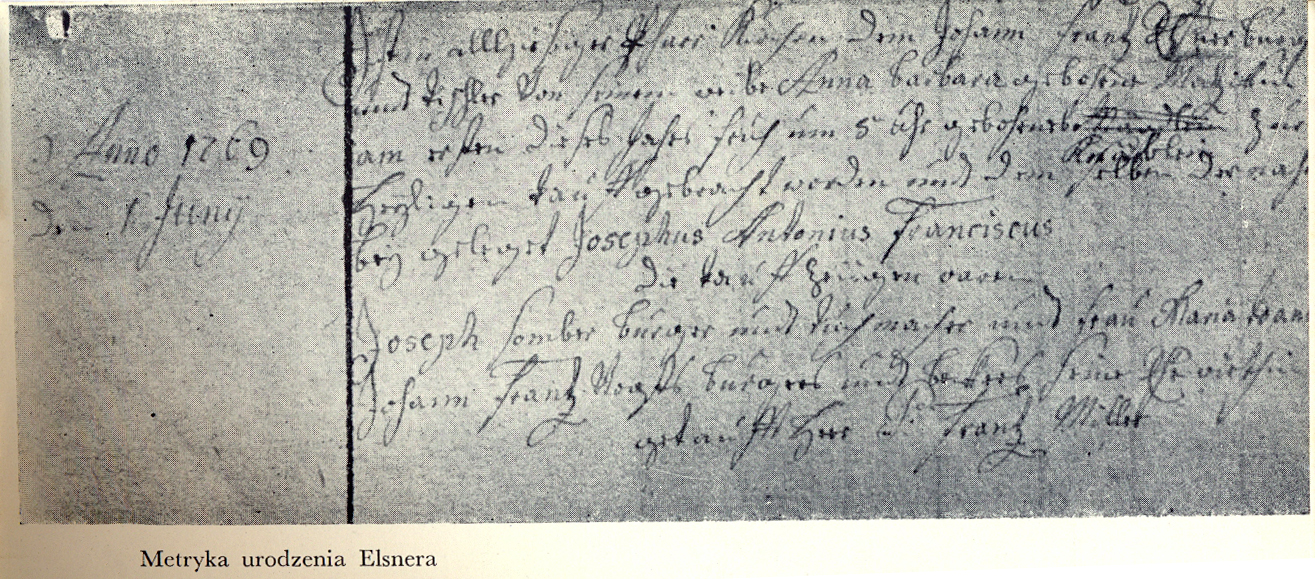 Anno 1769
den 1 Juny
Ist in allhiesiger Pfarr Kirchen dem Johann Frantz
und Tischler Von seinem weibe Anna barbara gebohrne
am ersten dieses fruh um 5 Uhr gebohrnes zur
Knäblein
Heyligen tauff gebracht worden und dem selben der nah
bey geleget Josephus Antonius Franciscus
die tauff zeugen waren
Joseph burger und tuchmacher und frau Maria
Johann Frantz burgers und seine
getaufft Herr Frantz Miller
Metryka urodzenia Elsnera